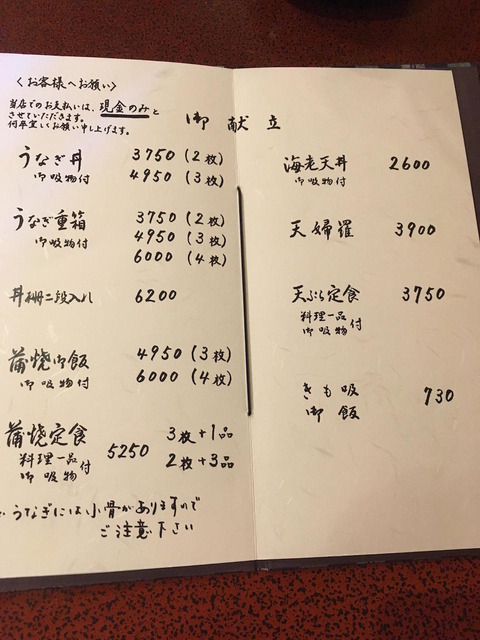 〈お客様へお願い〉
当店でのお支払いは、現金のみと
させていただきます。
何卒宜しくお願い申し上げます。
うなぎ丼 3750(2枚)
御吸物付 4950(3枚)
うなぎ重箱 3750(2枚)
御吸物付 4950(3枚)
6000(4枚)
丼 二段入れ 6200
蒲焼御飯 4950(3枚)
御吸物付 6000(4枚)
蒲焼定食 5250 3枚+1品
料理一品 2枚+3品
御吸物付
うなぎには小骨がありますので
ご注意下さい
御献立
海老天丼 2600
御吸物付
天婦羅 3900
天ぷら定食 3750
料理一品
御吸物付
きも吸 730
御飯